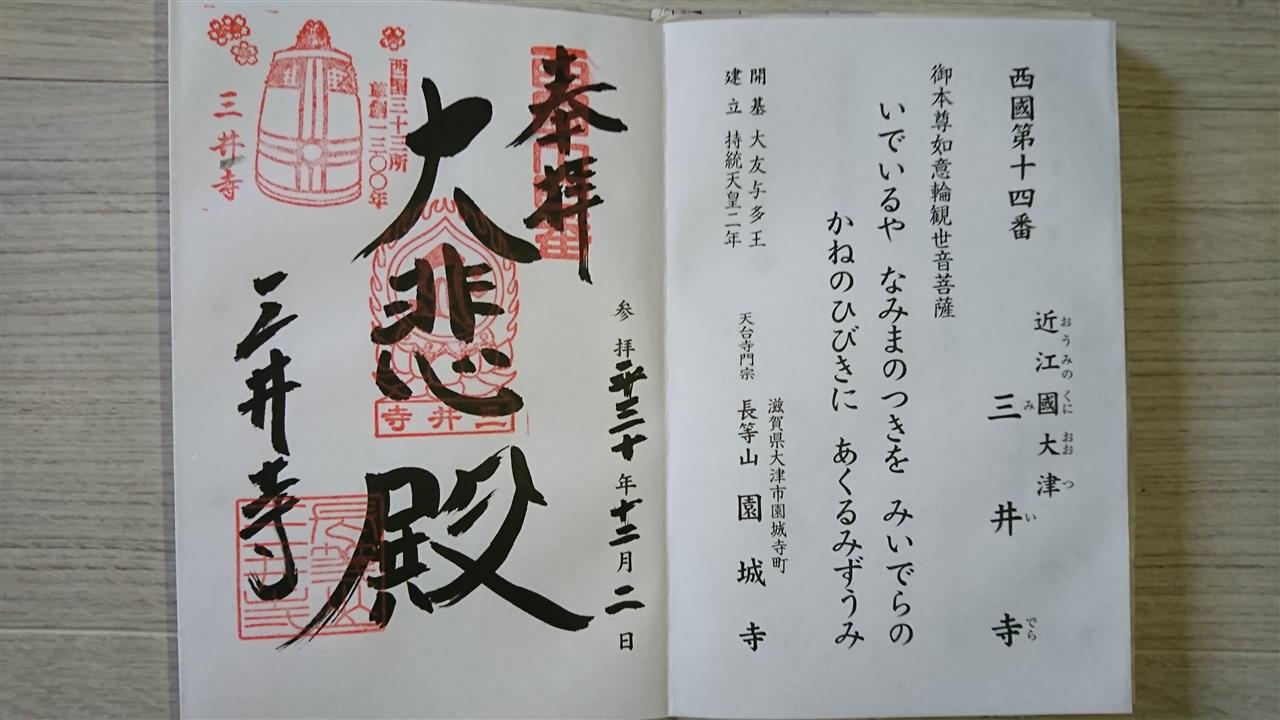 西國第十四番
近江國大津
おうみのくにおおつ
三井寺
みいでら
御本尊如意輪観世音菩薩
いでいるや なみまのつきを みいでらの
かねのひびきに あくるみずうみ
開基 大友与多王
建立 持統天皇二年
滋賀県大津市園城寺町
天台寺門宗 長等山 園城寺
奉拝
参拝 三十年十二月二日
大悲殿
三井寺
西國三十三所
草創一三〇〇年
三井寺
三井寺